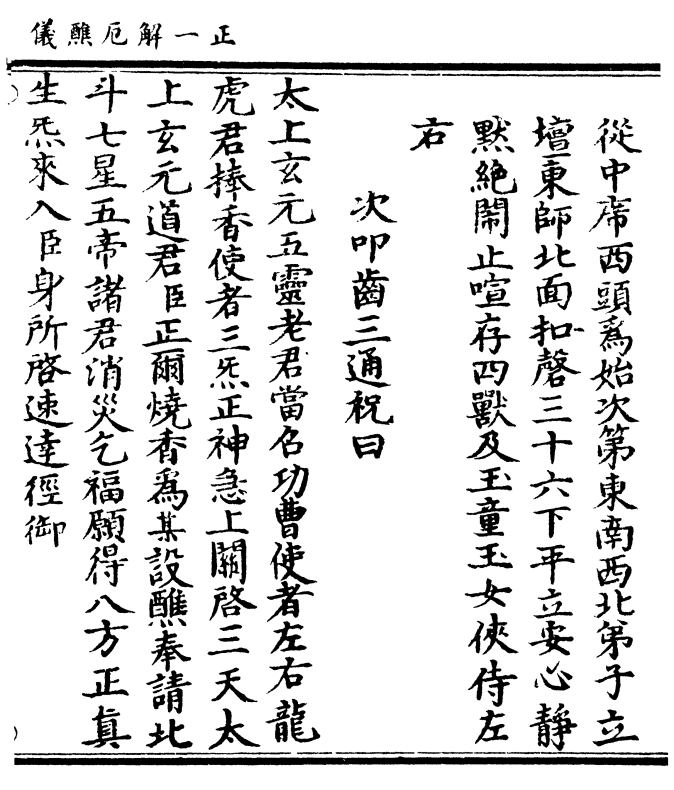 正一解厄醮儀
從中席西頭爲始次第東南西北弟子立
壇東師北面扣磬三十六下平立安心靜
默絶鬧止喧存四獸及玉童玉女俠侍左
右
次叩齒三通祝曰
太上玄元五靈老君當名功曹使者左右龍
虎君捧香使者三炁正神急上關啓三天太
上玄元道君臣正爾燒香爲某設醮奉請北
斗七星五帝諸君消災乞福願得八方正眞
生炁來入臣身所啓速達徑御